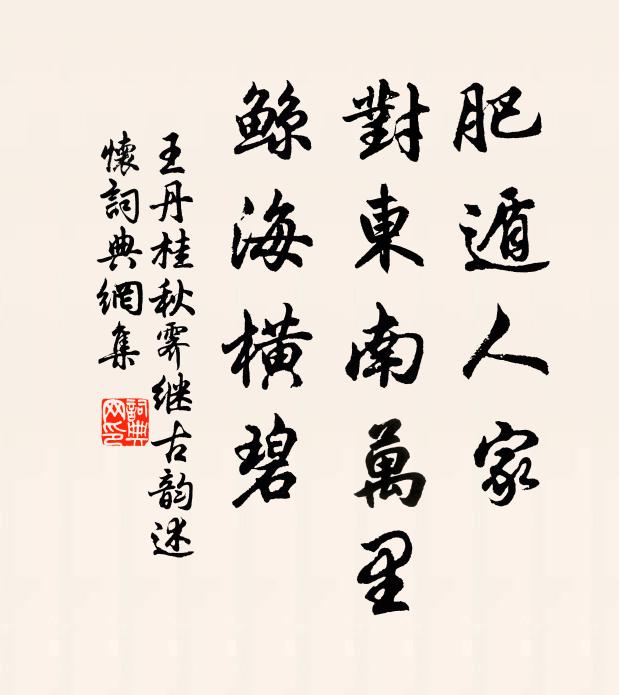 肥遁人家
對東南萬里
鲸海橫碧
王丹桂秋霽继古韵述
懷詞典網集
詞典
网印